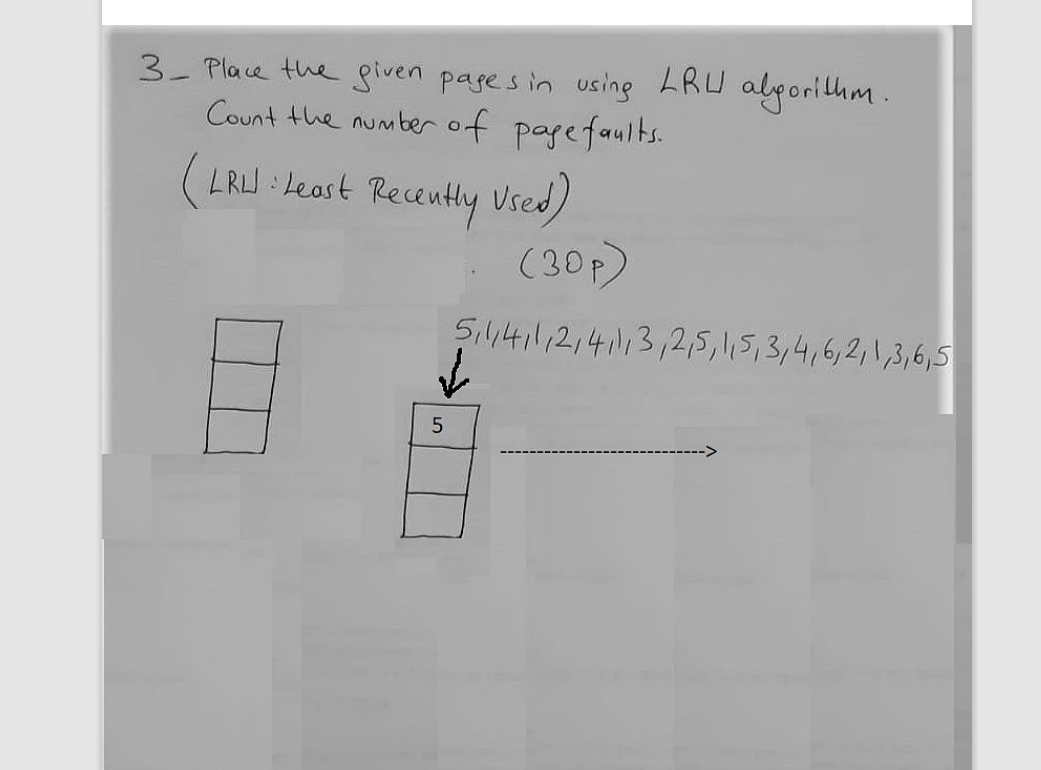 3- Place the given pages in using LRU algorithm.
Count the number of page faults.
(LRU: Least Recently Used)
(30p)
5,1,4,1,2,4,1,3,2,5,1,5,3,4,6,2,1,3,6,5
5
---------------------------->